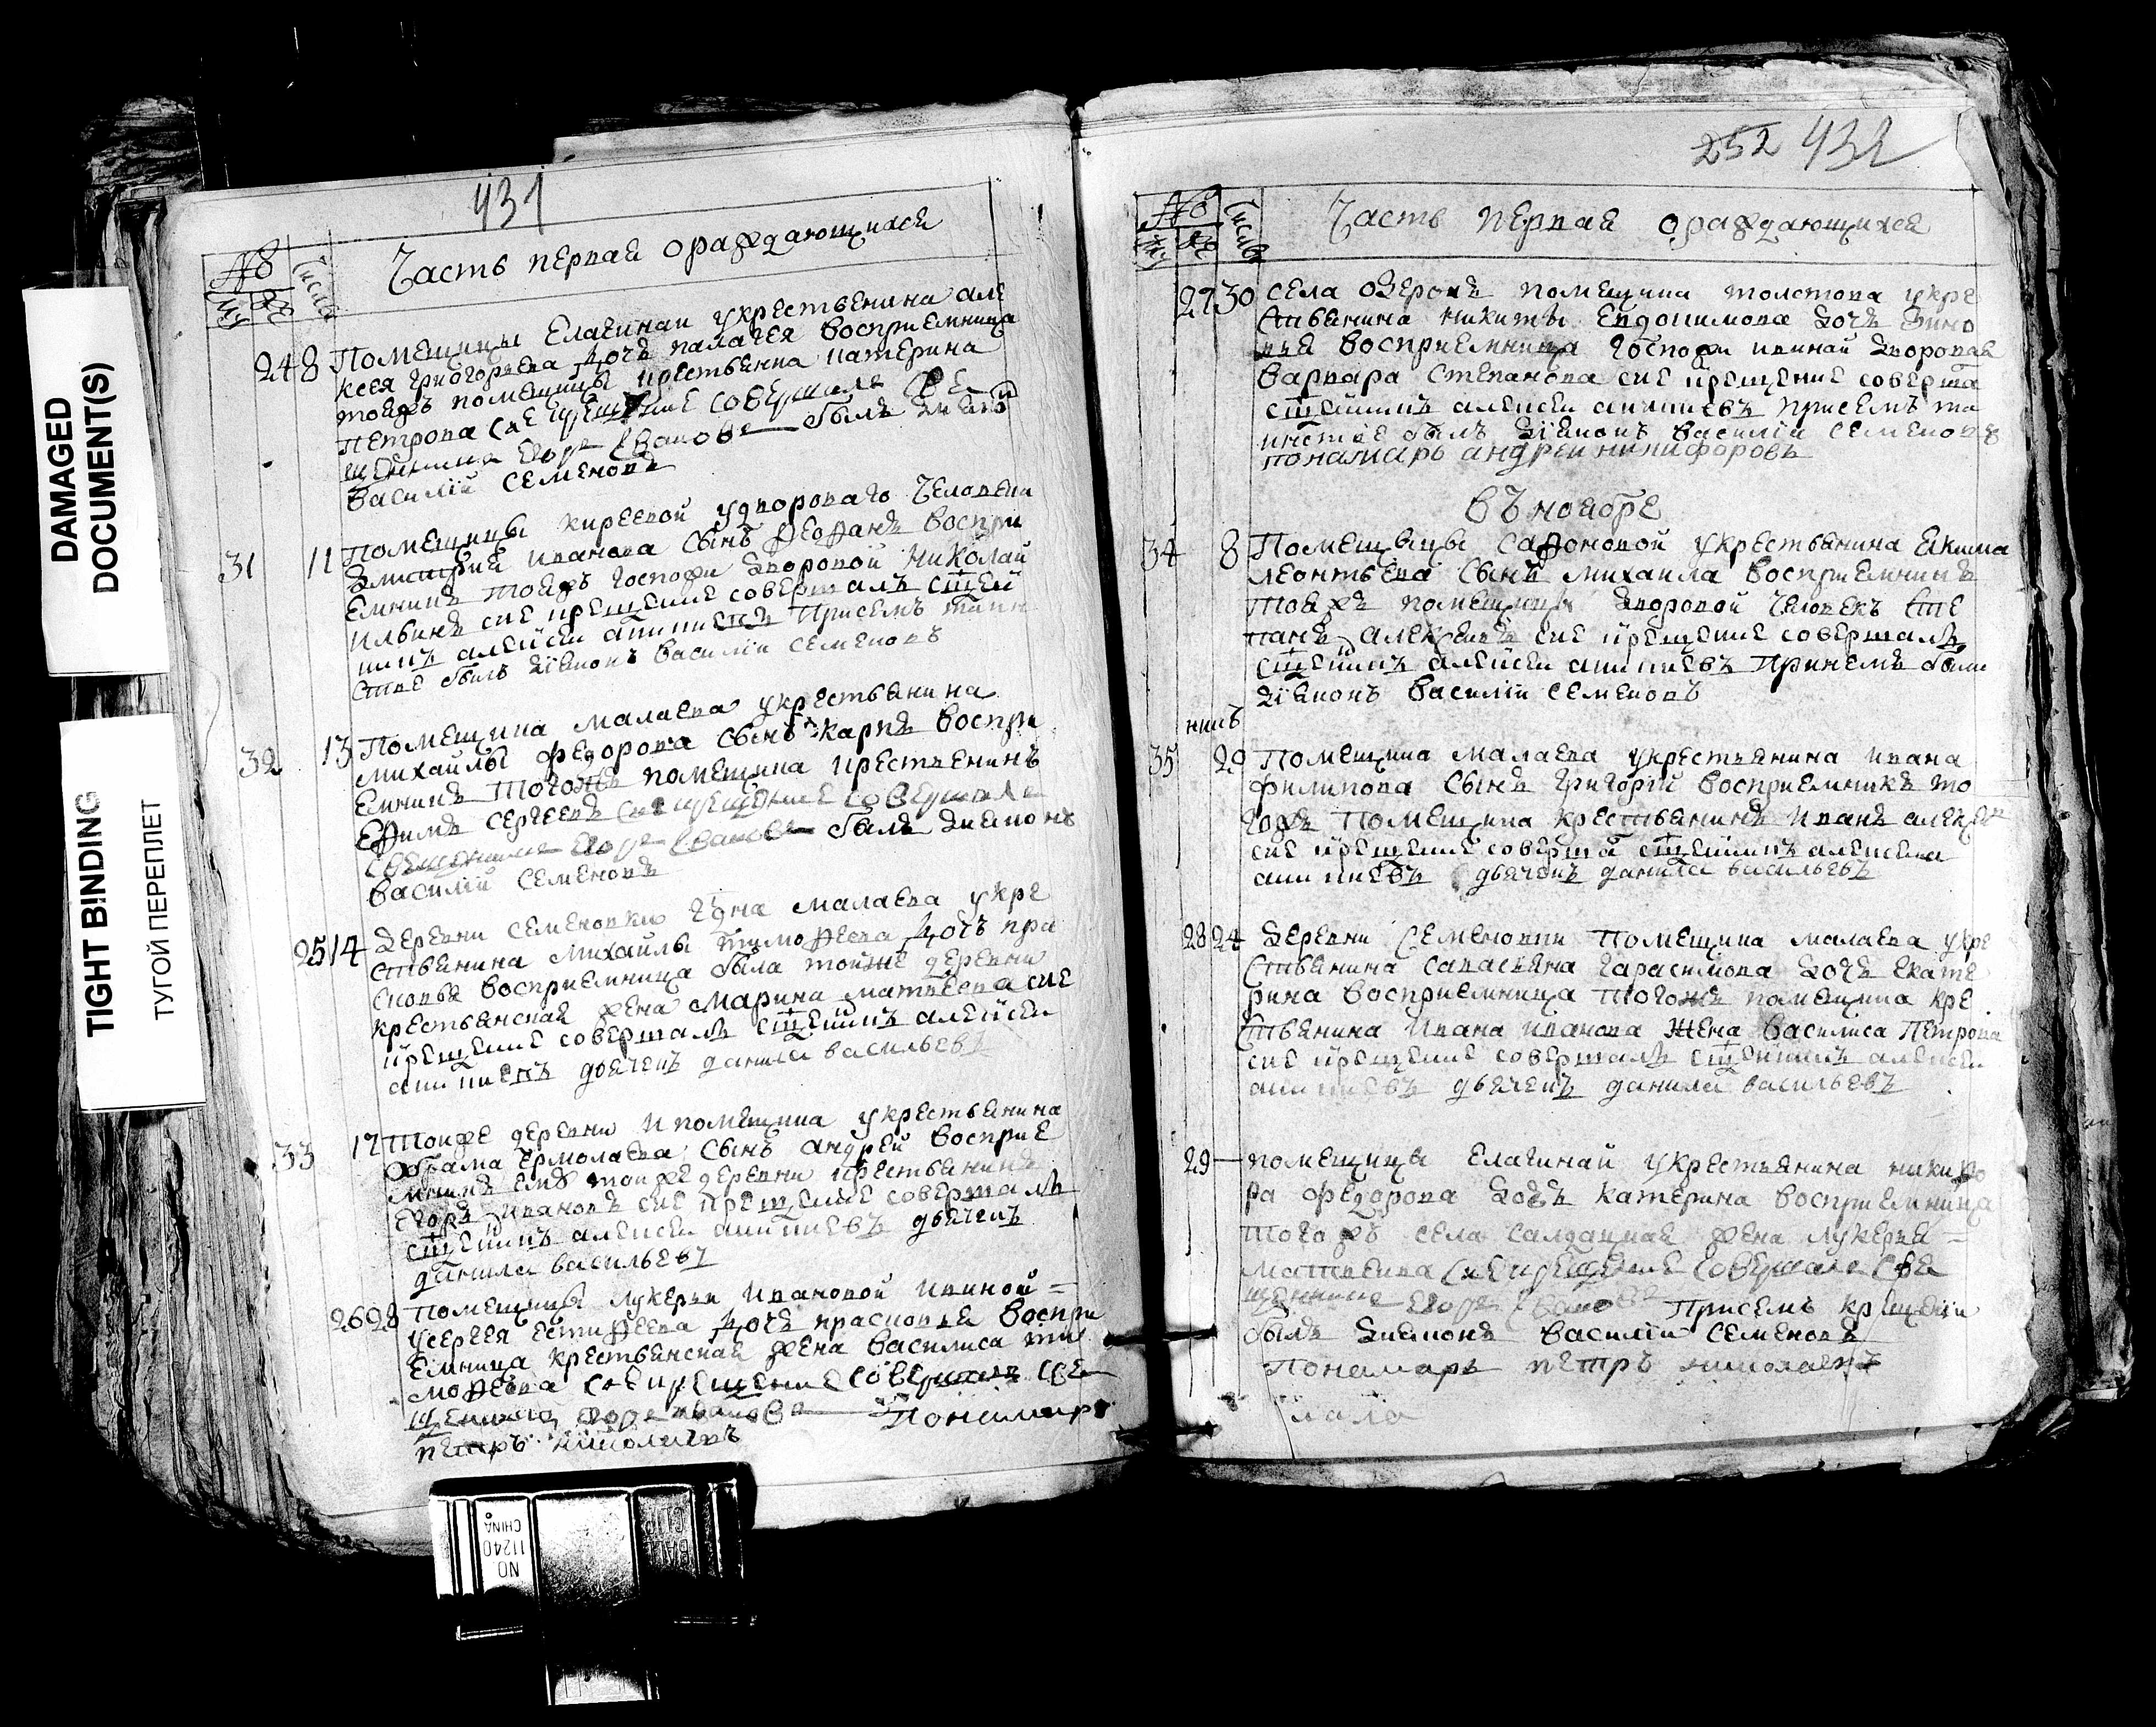 DAMAGED
DOCUMENT(S)
TIGHT BINDING
ТУГОЙ ПЕРЕПЛЕТ
431
№
числа
Часть первая ораждающихся
24 8 Помещицы Елагинаи укрестьянина але
ксея григорьева дочь палагея восприемница
тояжъ помещицы крестьянка катерина
петрова сие крещение совершалъ свя
щенникъ былъ диаконъ
василий семеновъ
31 11 Помещицы киреевой удвороваго человека
димитрия иванова сынъ феофанъ воспри
емникъ тояжъ госпожи дворовой николай
ильинъ сие крещение совершалъ сщен
никъ алексей антипиевъ присемъ таин
стве былъ диаконъ василий семеновъ
32 13 Помещика малаева укрестьянина
михайлы федорова сынъ карпъ воспри
емникъ тогожъ помещика крестьянинъ
ефимъ сергеевъ сие крещение совершалъ
священникъ былъ диаконъ
василий семеновъ
25 14 деревни семеновки гдна малаева укре
стьянина михайлы тимофеева дочь пра
сковья восприемница была тойже деревни
крестьянская жена марина матвеева сие
крещение совершалъ сщенникъ алексей
антипиевъ дьячекъ данила васильевъ
33 17 тоижъ деревни и помещика укрестьянина
абрама ермолаева сынъ андрей восприе
мникъ емъ тоижъ деревни крестьянинъ
егоръ ивановъ сие крещение совершалъ
сщенникъ алексей антипиевъ дьячекъ
данила васильевъ
26 28 помещицы лукерьи ивановой ивиной
усергея естифеева дочь прасковья воспри
емница крестьянская жена василиса ти
мофеева сие крещение совершалъ свя
щенникъ Пономарь
петръ николаевъ
252 432
№
числа
Часть первая ораждающихся
27 30 села озерокъ помещика толстова укре
стьянина никиты евдокимова дочь зино
вья восприемница госпожи ивинай дворовая
варвара степанова сие крещение соверша
сщенникъ алексей антипиевъ присемъ та
инстве былъ диаконъ василий семеновъ
понамарь андреи никифоровъ
въ ноябре
34 8 Помещицы сафоновой укрестьянина екима
леонтьева сынъ михаила восприемникъ
тояжъ помещицы дворовой человекъ сте
панъ алексеевъ сие крещение совершалъ
сщенникъ алексей антипиевъ принемъ былъ
диаконъ василий семеновъ
никъ
35 29 Помещика малаева укрестьянина ивана
филипова сынъ григорий восприемникъ то
гожъ помещика крестьянинъ иванъ алексеевъ
сие крещение соверша сщенникъ алексей
антипиевъ дьячекъ данила васильевъ
28 24 деревни семеновки помещика малаева укре
стьянина савасьяна гарасимова дочь екате
рина восприемница тогожъ помещика кре
стьянина ивана иванова жена василиса петрова
сие крещение совершалъ сщенникъ алексей
антипиевъ дьячекъ данила васильевъ
29 помещицы елагинай укрестьянина никифо
ра федорова дочь катерина восприемница
тогожъ села салдацкая жена лукерья
матвеева сие крещение совершалъ свя
щенникъ присемъ крещении
былъ диаконъ василий семеновъ
пономарь петръ николаевъ
NO. 11240
CHINA
BALL
CLIP